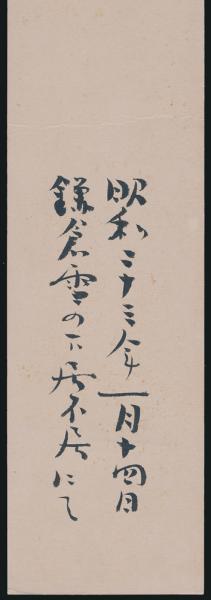 昭和二十三年一月十四日
鎌倉雪の下居不居にて